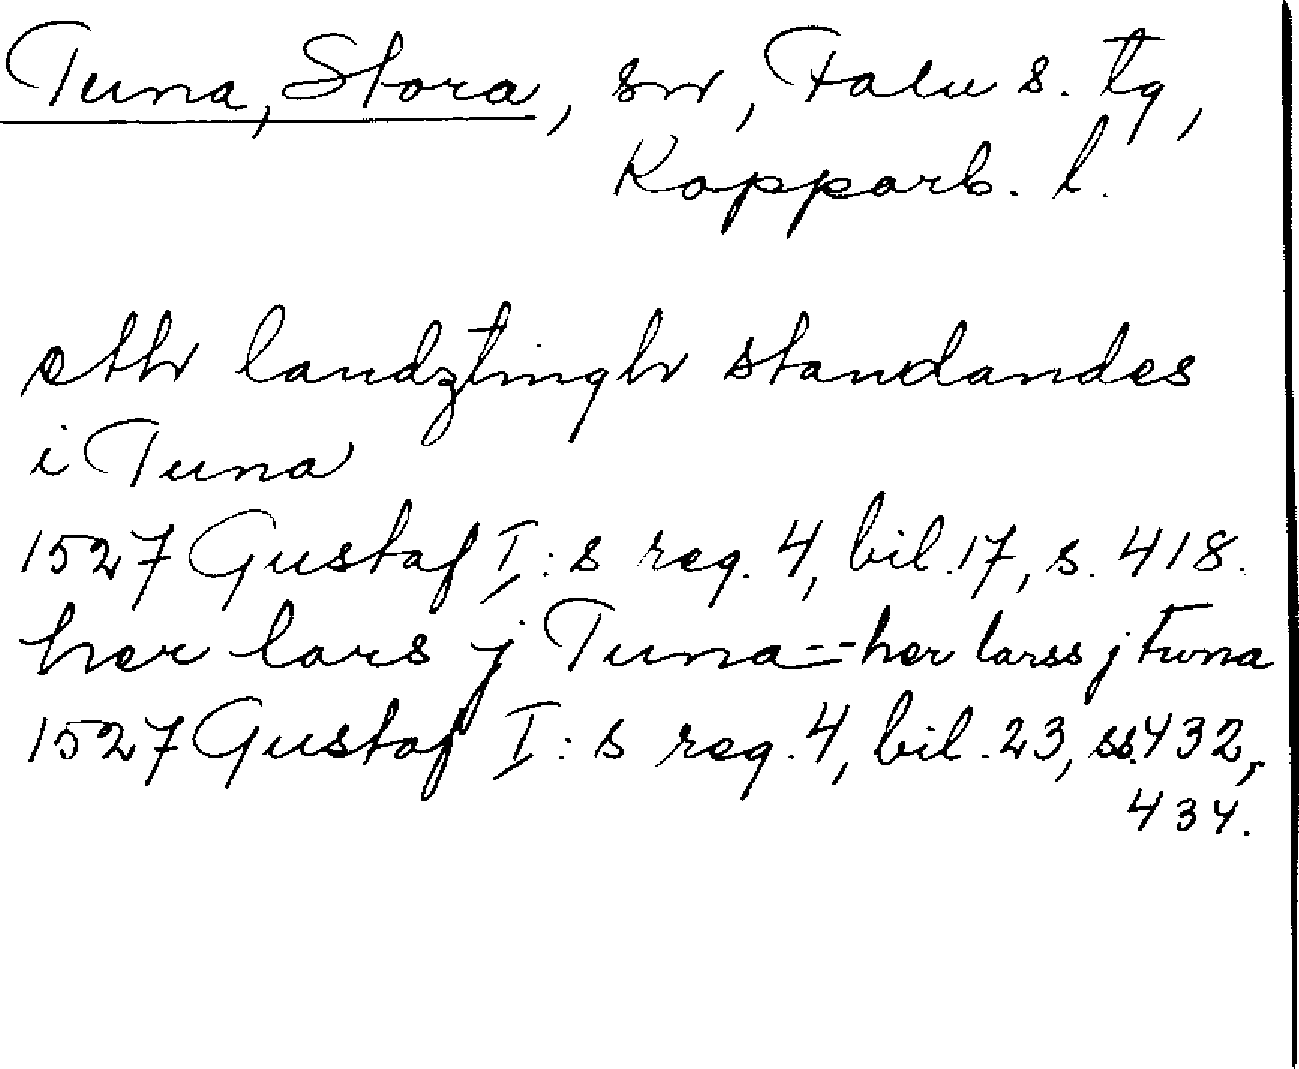 Tuna, Stora, sn, Falu s. tg,
Kopparb. l.
etth landztingh standandes
i Tuna
1527 Gustaf I:s reg. 4, bil. 17, s. 418.
her lars j Tuna = her larss j twna
1527 Gustaf I:s reg. 4, bil. 23, ss. 432,
434.